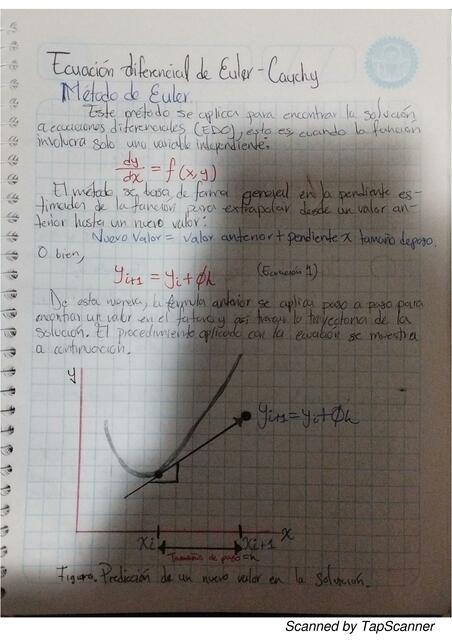 Ecuación diferencial de Euler-Cauchy
Método de Euler.
Este método se aplica para encontrar la solución
a ecuaciones diferenciales (EDO), esto es cuando la función
involucra solo una variable independiente:
dy/dx = f(x,y)
El método se basa de forma general en la pendiente es-
timada de la función para extrapolar desde un valor an-
terior hasta un nuevo valor:
Nuevo valor = valor anterior + pendiente x tamaño de paso.
O bien,
yi+1 = yi + φh (Ecuación 1)
De esta manera, la fórmula anterior se aplica paso a paso para
encontrar un valor en el futuro y así trazar la trayectoria de la
solución. El procedimiento aplicado con la ecuación se muestra
a continuación.
y
yi+1 = yi + φh
xi xi+1 x
Tamaño de paso = h
Figura. Predicción de un nuevo valor en la solución.
Scanned by TapScanner